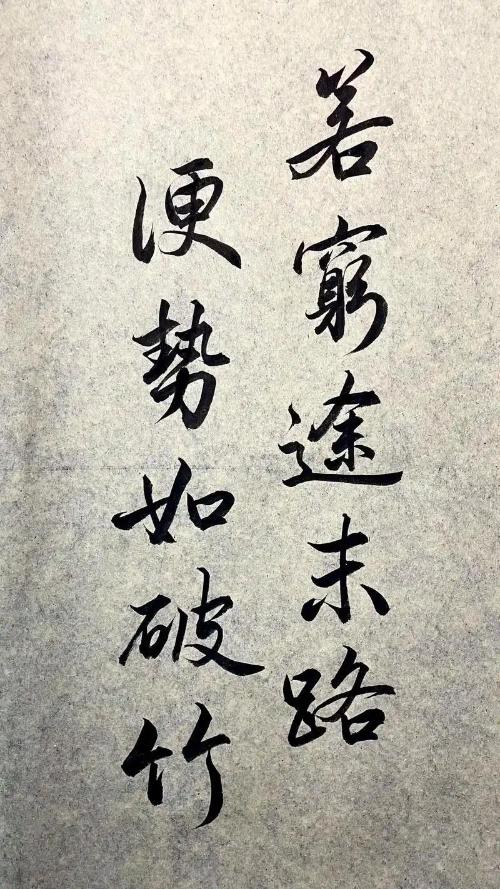 若窮途末路
便勢如破竹